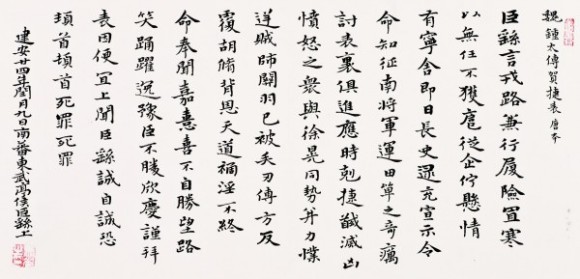 魏 鍾太傅賀捷表 唐本
臣繇言戎路兼行履險冒寒
以無任不獲扈從企佇懸情
有寧舍即日長史逯充宣示令
命知征南將軍運田單之奇厲
討表裏俱進應時剋捷馘滅凶
憤怒之衆與徐晃同勢并力撲
逆賊帥關羽已被矢刃傅方反
覆胡脩背恩天道禍淫不終
命奉聞嘉憙喜不自勝望路
笑踊躍逸豫臣不勝欣慶謹拜
表因便宜上聞臣繇誠自誠恐
頓首頓首死罪死罪
建安廿四年閏月九日南蕃東武亭侯臣繇上